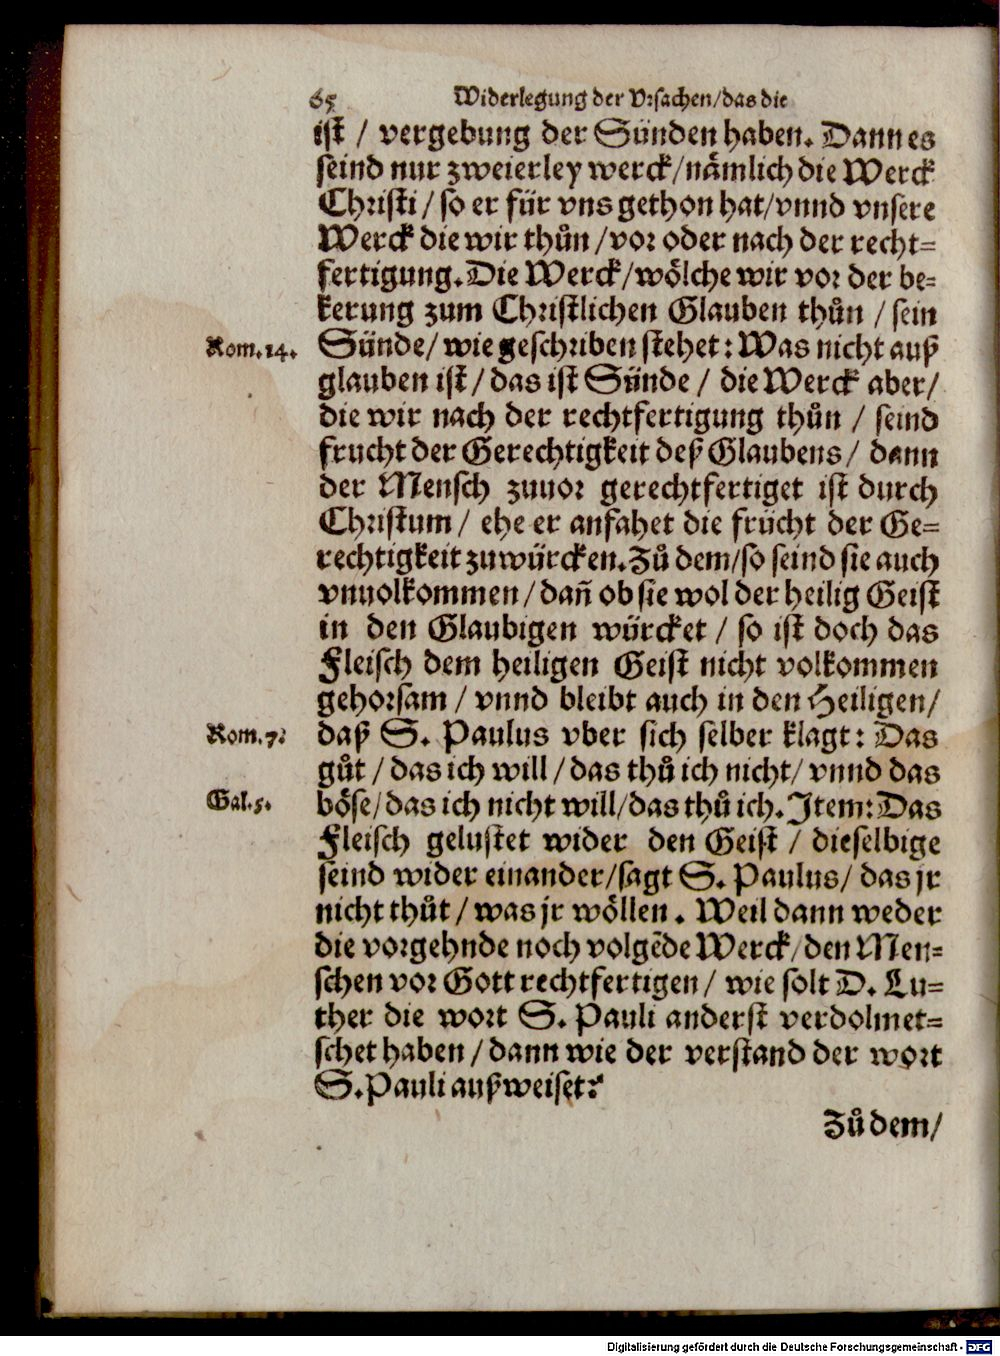 65 Widerlegung der Vrsachen/das die
ist / vergebung der Sünden haben. Dann es
seind nur zweierley werck/nämlich die Werck
Christi / so er für vns gethon hat/vnnd vnsere
Werck die wir thůn / vor oder nach der recht=
fertigung. Die Werck/wölche wir vor der be=
kerung zum Christlichen Glauben thůn / sein
Rom.14. Sünde/ wie geschriben stehet: Was nicht auß
glauben ist / das ist Sünde / die Werck aber/
die wir nach der rechtfertigung thůn / seind
frucht der Gerechtigkeit deß Glaubens/ dann
der Mensch zuuor gerechtfertiget ist durch
Christum/ ehe er anfahet die frücht der Ge=
rechtigkeit zuwürcken. Zů dem/so seind sie auch
vnuolkommen/ dañ ob sie wol der heilig Geist
in den Glaubigen würcket / so ist doch das
Fleisch dem heiligen Geist nicht volkommen
gehorsam / vnnd bleibt auch in den Heiligen/
Rom.7. daß S. Paulus vber sich selber klagt: Das
gůt / das ich will / das thů ich nicht/ vnnd das
Gal.5. böse/das ich nicht will/das thů ich. Item: Das
Fleisch gelustet wider den Geist / dieselbige
seind wider einander/sagt S. Paulus/ das jr
nicht thůt / was jr wöllen. Weil dann weder
die vorgehnde noch volgẽde Werck/den Men=
schen vor Gott rechtfertigen / wie solt D. Lu=
ther die wort S. Pauli anderst verdolmet=
schet haben / dann wie der verstand der wort
S. Pauli außweiset?
Zů dem/
Digitalisierung gefördert durch die Deutsche Forschungsgemeinschaft - DFG